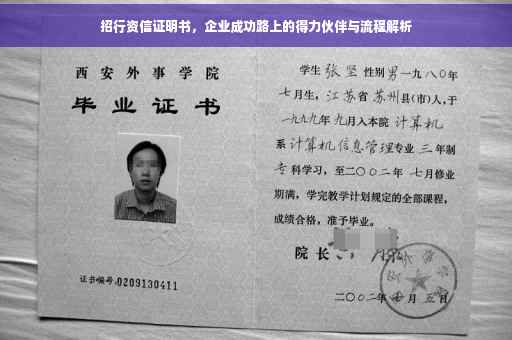 招行资信证明书，企业成功路上的得力伙伴与流程解析
西安外事学院
毕业证书
证书编号:0209130411
学生张坚性别男一九八〇年
七月生，江苏省苏州县(市)人,于
一九九九年九月入本院计算机
系计算机信息管理专业三年制
专科学习，至二〇〇二年七月修业
期满，学完教学计划规定的全部课程，
成绩合格，准予毕业。
院长
二〇〇二年 月五日